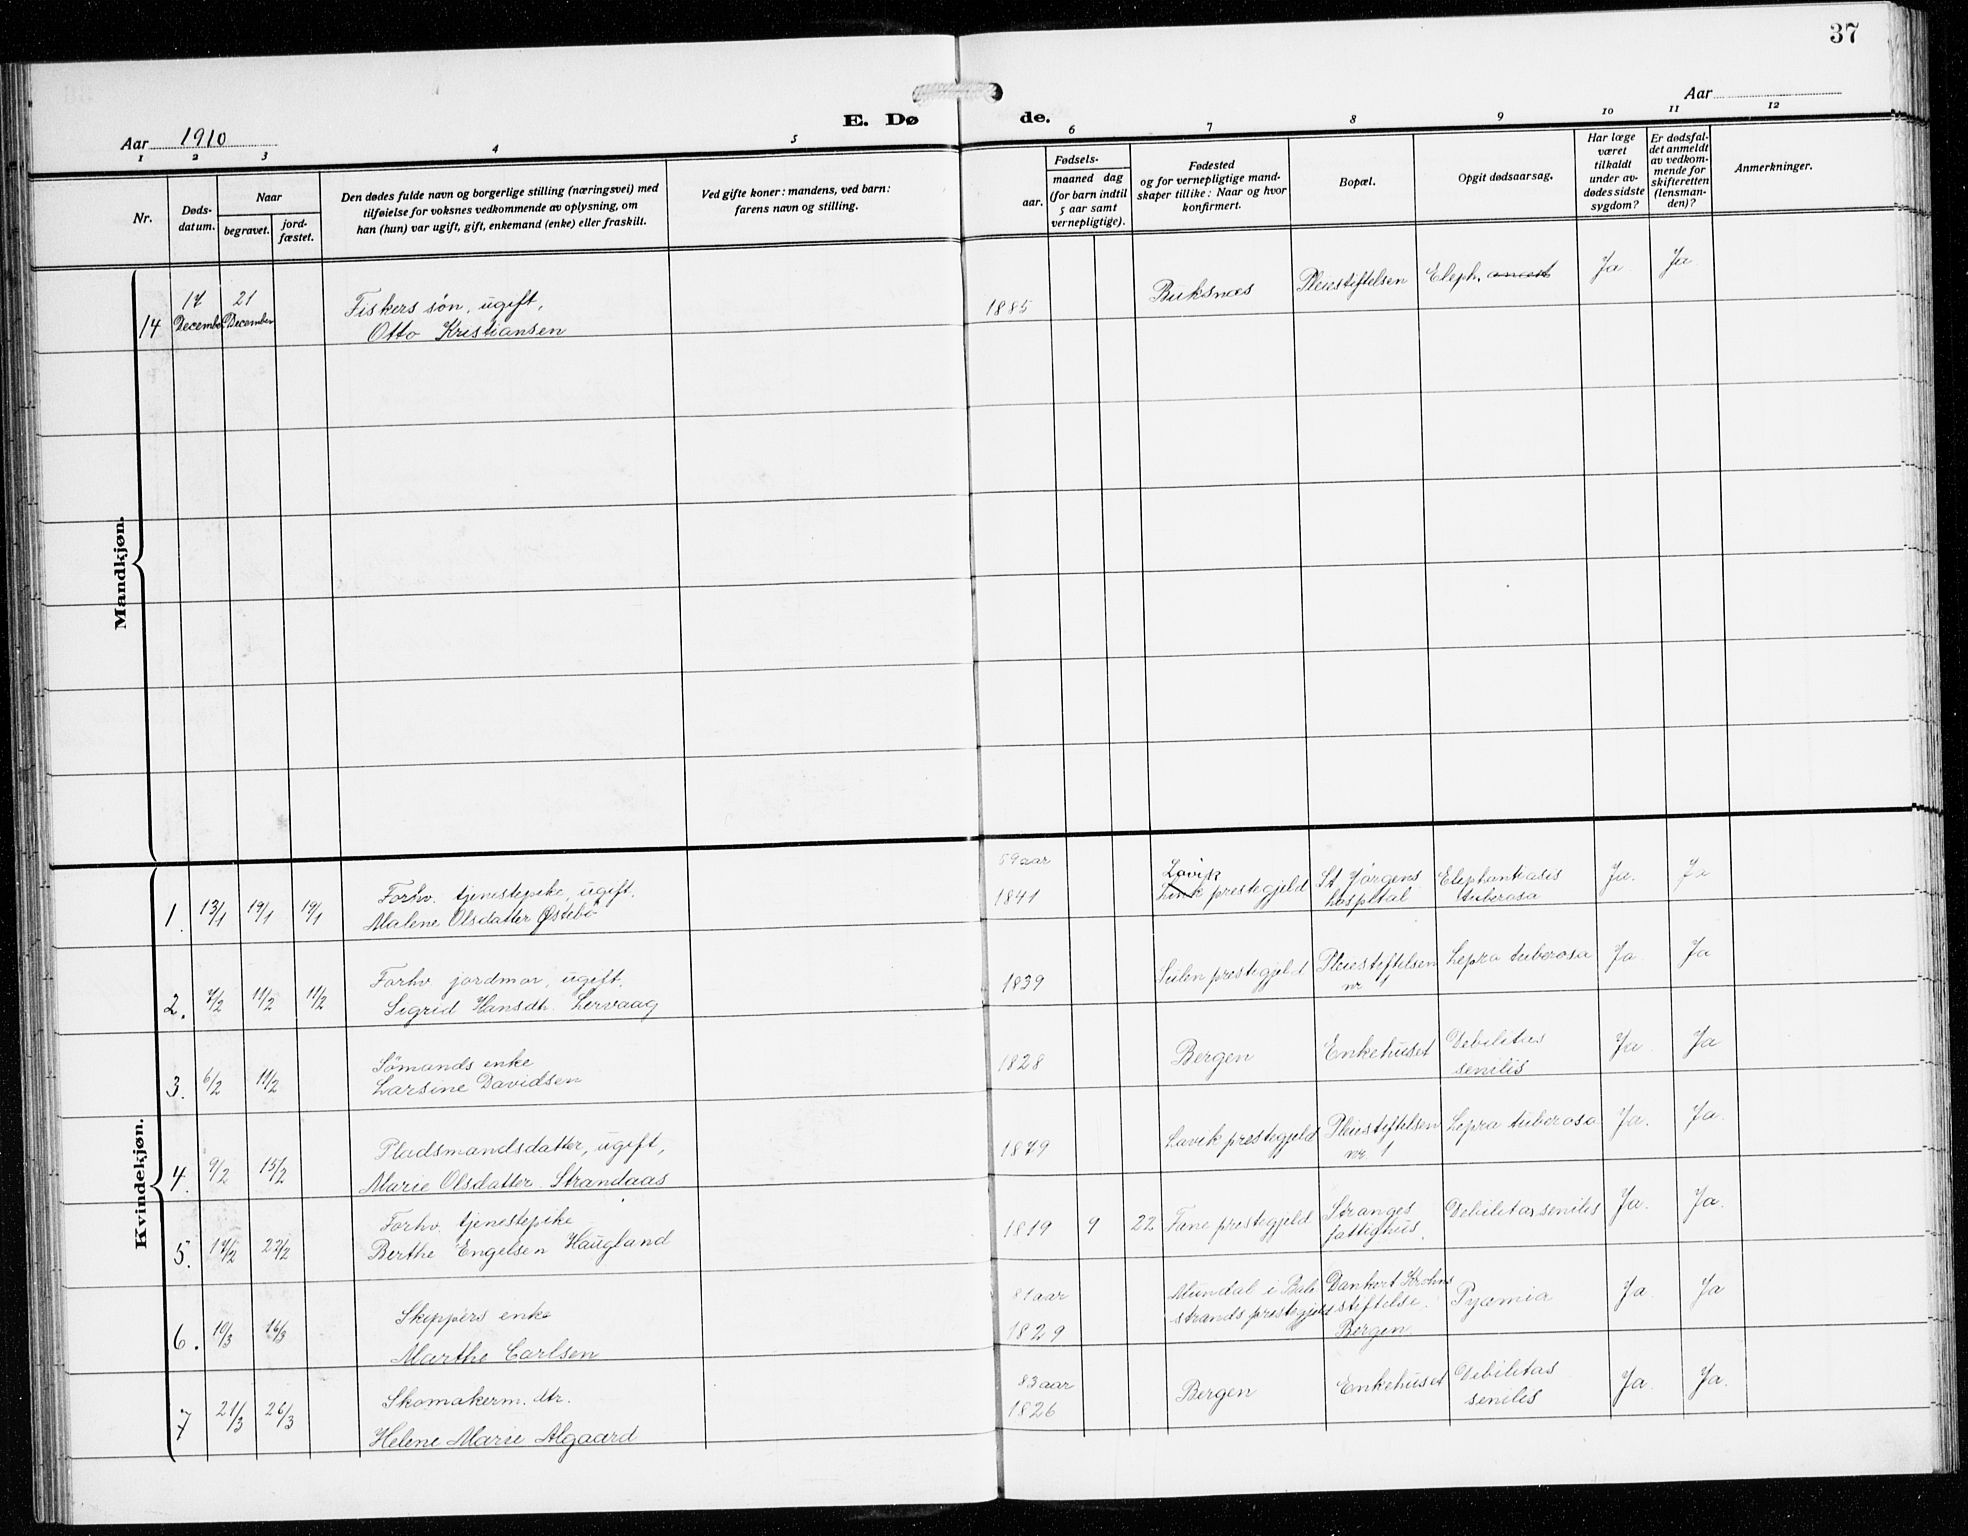 37
E. Dø de.
Aar 1910
Aar
1 2 3 4 5 6 7 8 9 10 11 12
Nr.
Døds-
datum.
Naar
begravet.
jord-
fæstet.
Den dødes fulde navn og borgerlige stilling (næringsvei) med
tilføielse for voksnes vedkommende av oplysning, om
han (hun) var ugift, gift, enkemand (enke) eller fraskilt.
Ved gifte koner: mandens, ved barn:
farens navn og stilling.
Fødsels-
aar.
maaned dag
(for barn indtil
5 aar samt
vernepligtige).
Fødested
og for vernepligtige mand-
skaper tillike: Naar og hvor
konfirmert.
Bopæl.
Opgit dødsaarsag.
Har læge
været
tilkaldt
under av-
dødes sidste
sygdom?
Er dødsfal-
det anmeldt
av vedkom-
mende for
skifteretten
(lensman-
den)?
Anmerkninger.
Mandkjøn.
14
17
December
21
December
Fiskers søn, ugift,
Otto Kristiansen
1885
Buksnæs
Pleiestiftelsen
Eleph.
Ja
Ja
Kvindekjøn.
1.
13/1
19/1
19/1
Forhv. tjenestepike, ugift.
Malene Olsdatter Østebø
59 aar
1841
Lavik
prestegjeld
St Jørgens
hospital
Elephantiasis
tuberosa
Ja.
Ja
2.
7/2
11/2
11/2
Forhv jordmor, ugift.
Sigrid Hansdtr. Lervaag
1839
prestegjeld
Pleiestiftelsen
nr 1
Lepra tuberosa
Ja
Ja
3.
6/2
11/2
Sømands enke
Larsine Davidsen
1828
Bergen
Enkehuset
Debilitas
senilis
Ja
Ja
4.
9/2
15/2
Pladsmandsdatter, ugift,
Marie Olsdatter Strandaas
1879
Lavik prestegjeld
Pleiestiftelsen
nr. 1
Lepra tuberosa
Ja.
Ja.
5.
17/2
22/2
Forhv. tjenestepike
Berthe Engelsen Haugland
1819 9 22
Fane prestegjeld
Stranges
fattighus.
Debilitas senilis
Ja.
Ja.
6.
10/3
16/3
Skippers enke
Marthe Carlsen
81 aar
1829
Mundal i Bale
strands prestegjeld
Dankert Krohns
stiftelse.
Bergen
Pyæmia
Ja.
Ja
7
21/3
26/3
Skomakerm. dtr.
Helene Marie Algaard
83 aar
1826
Bergen
Enkehuset
Debilitas
senilis
Ja.
Ja.